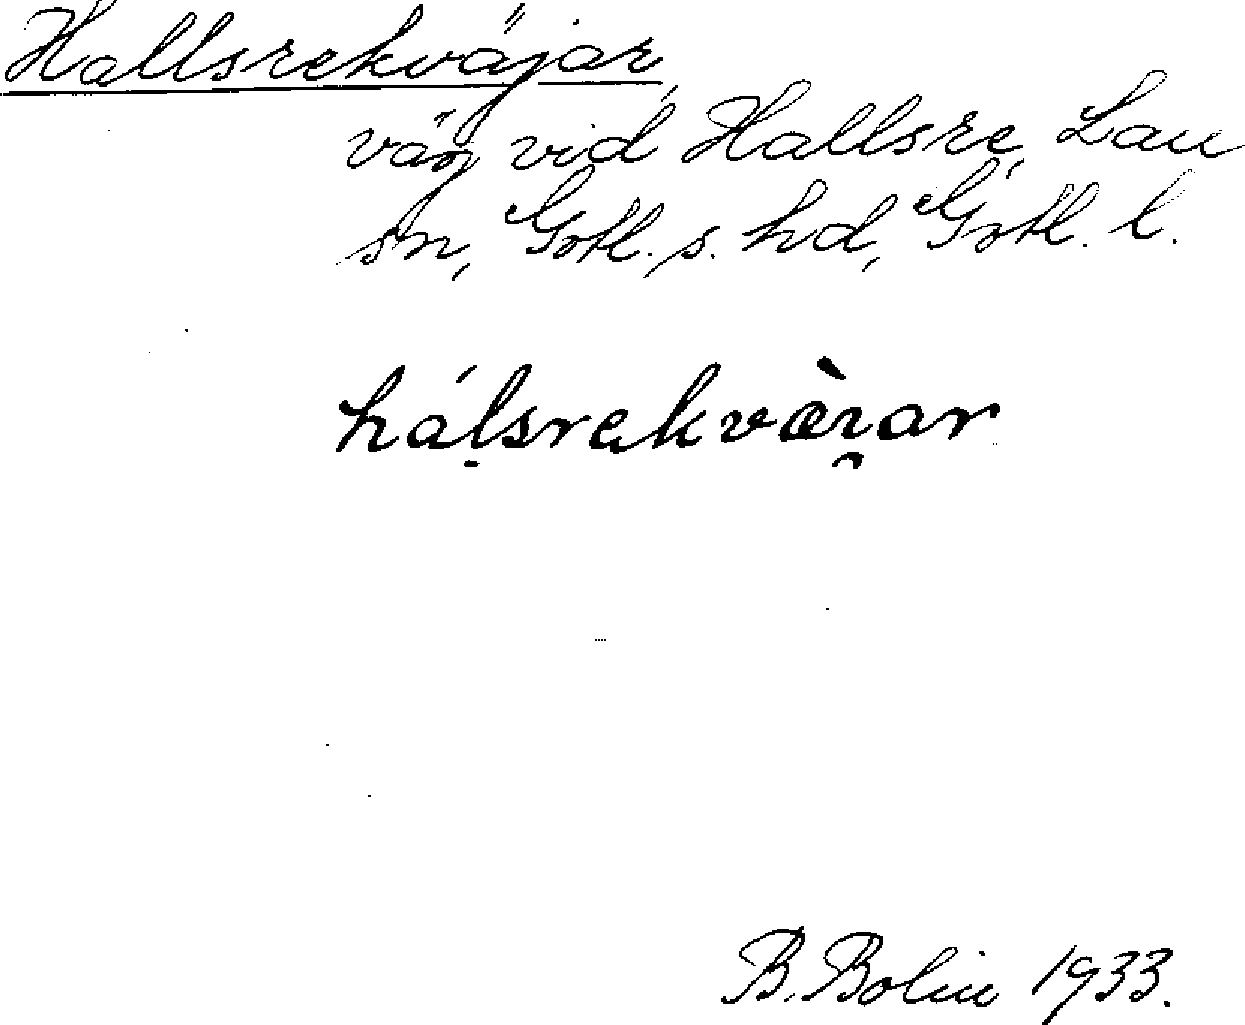 Hallsrekväjar,
väg vid Hallsre, Lau
sn, Gotl. s. hd, Gotl. l.
hálsrekvæ̀rar
B. Bolin 1933.